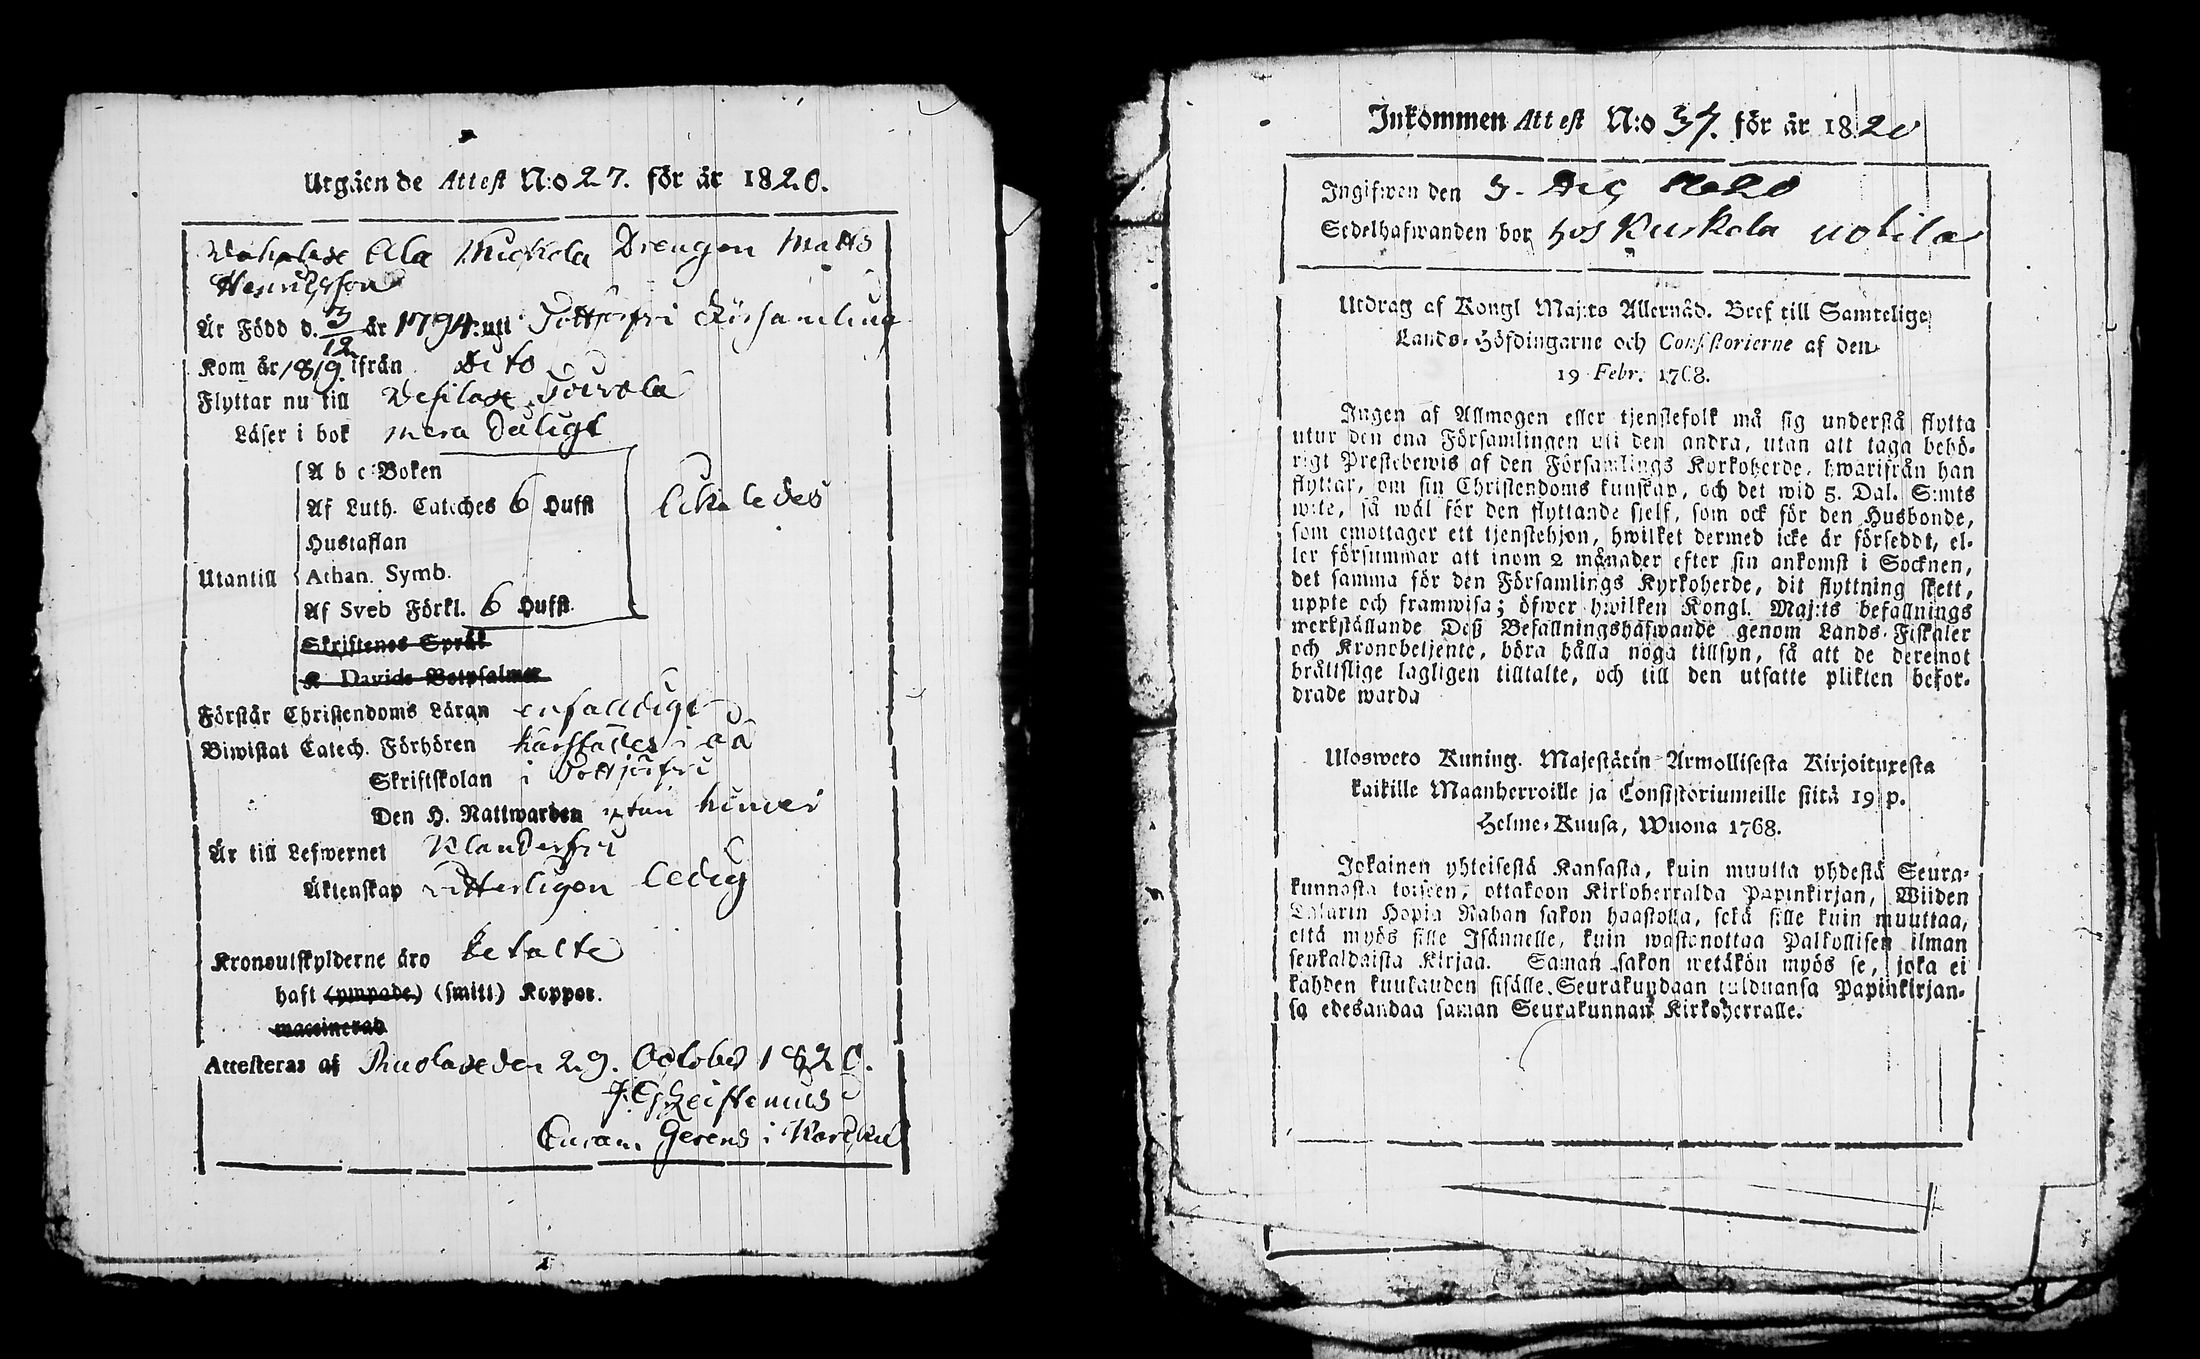 Utgåen de Attest N:o 27. för år 1820.
Ala Drengen Matts
Henricsson
Är Född d. 3/12 år 1794. uti Församling
Kom år 1819 ifrån Dito
Flyttar nu till Wesilax
Läser i bok mera
A b c Boken
Af Luth. Cateches 6 Hufst
Hustaflan
Utantill
Athan. Symb.
Af Sveb Förkl. 6 Hufst.
Skriftenes Språk
K Davids Botpsalmer
Förstår Christendoms Läran enfalldigt
Biwistat Catech. Förhören
Skriftskolan i
Den H. Nattwarden utan hinder
Är till Lefwernet Klanderfri
Äktenskap ledig
Kronoutskylderne äro betalte
haft (ympade) (smitt) Koppor.
waccinerad
Attesteras af den 29. October 1820.
Gerens i
Inkommen Attest N:o för år 1820
Ingifwen den 1820
Sedelhafwanden bor hos
Utdrag af Kongl Maj:ts Allernåd. Bref till Samtelige
Lands-Höfdingarne och Consistorierne af den
19 Febr. 1768.
Ingen af Allmogen eller tjenstefolk må sig understå flytta
utur den ena Församlingen uti den andra, utan att taga behö-
rigt Prestebewis af den Församlings Kyrkoherde, hwarifrån han
flyttar, om sin Christendoms kunskap, och det wid 5. Dal. S:mts
wite, så wäl för den flyttande sjelf, som ock för den Husbonde,
som emottager ett tjenstehjon, hwilket dermed icke är förseddt, el-
ler försummar att inom 2 månader efter sin ankomst i Socknen,
det samma för den Församlings Kyrkoherde, dit flyttning skett,
uppte och framwisa; öfwer hwilken Kongl. Maj:ts befallnings
werkställande Deß Befallningshafwande genom Lands-Fiskaler
och Kronobetjente, böra hålla noga tillsyn, så att de deremot
brättslige lagligen tilltalte, och till den utsatte plikten befor-
drade warda
Uloswето Kuning. Majestätin Armollisesta Kirjoituxesta
kaikille Maanherroille ja Consistoriumeille siitä 19 p.
Helme-Kuusa, Wuona 1768.
Jokainen yhteisestä Kansasta, kuin muutta yhdestä Seura-
kunnasta toiseen, ottakoon Kirkoherralda Papinkirjan, Wiiden
Talarin Hopia Rahan sakon haastolla, sekä sille kuin muuttaa,
että myös sille Isännelle, kuin wastanottaa Palkollisen ilman
senkaldaista Kirjaa. Saman sakon wetäkön myös se, joka ei
kahden kuukauden sisälle Seurakundaan tulduansa Papinkirjan-
sa edesandaa saman Seurakunnan Kirkoherralle.